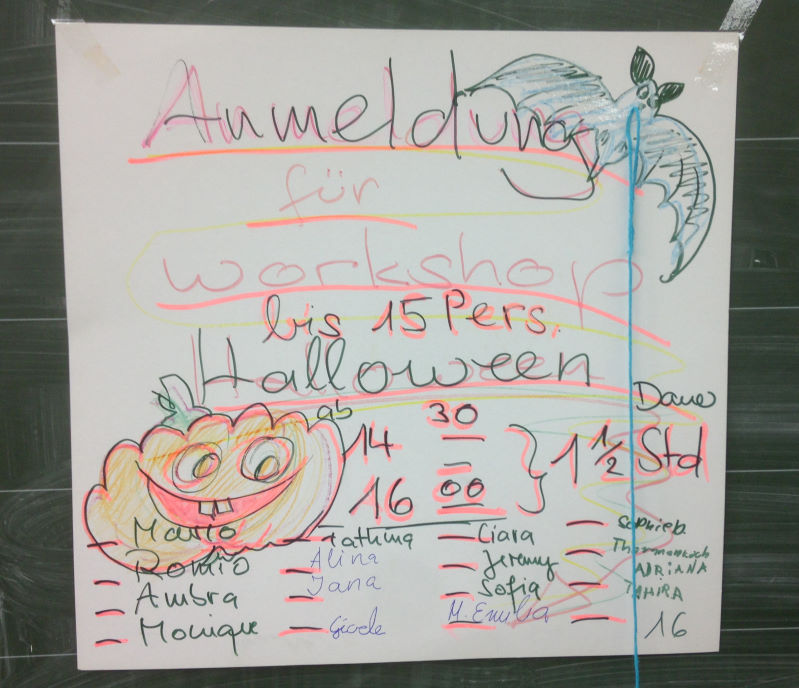 Anmeldung
für
workshop
bis 15 Pers.
Halloween
ab 14 30
16 00
Dauer
1 1/2 Std
Mario
Romio
Ambra
Monique
Tathina
Alina
Jana
Gioele
Ciara
Jeremy
Sofia
M. Emilia
ADRIANA
TAHIRA
16